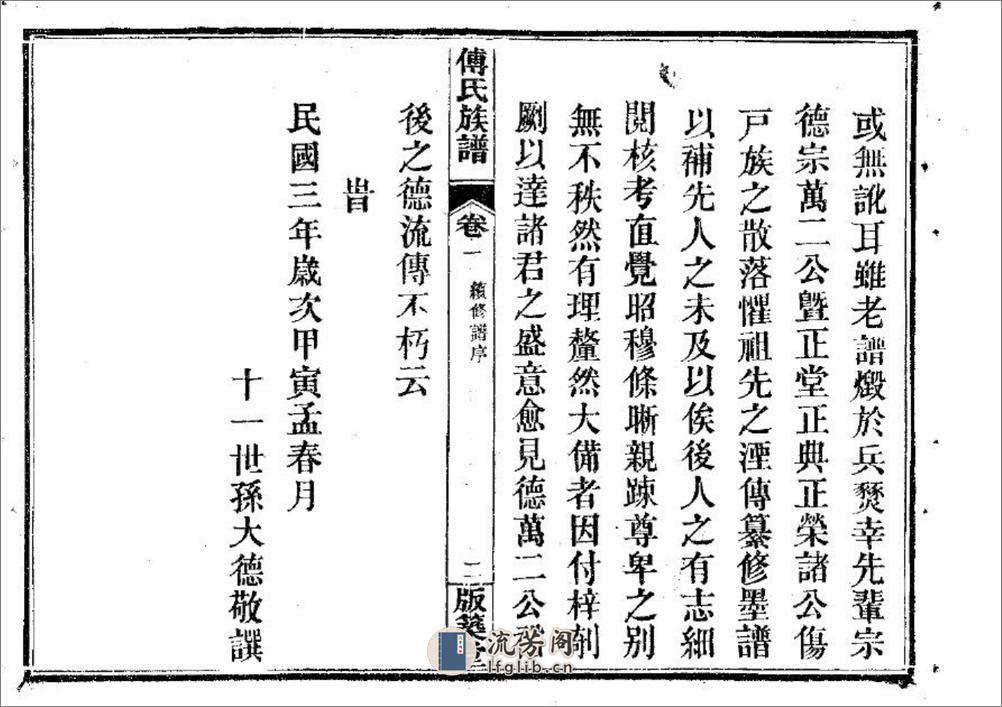 或無訛耳雖老譜燬於兵燹幸先輩宗
德宗萬二公暨正堂正典正榮諸公傷
戸族之散落懼祖先之湮傳纂修墨譜
以補先人之未及以俟後人之有志細
閱核考直覺昭穆條晰親踈尊卑之别
無不秩然有理釐然大備者因付梓剞
劂以逹諸君之盛意愈見德萬二公
傅氏族譜
卷一
續修譜序
二
版築
後之德流傳不朽云
旹
民國三年歲次甲寅孟春月
十一世孫大德敬譔
流芳阁
lfglib.cn